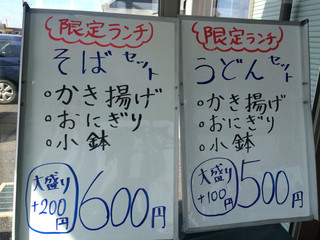 限定ランチ
そば セット
○かき揚げ
○おにぎり
○小鉢
大盛り
+200
円
600円
限定ランチ
うどん セット
○かき揚げ
○おにぎり
○小鉢
大盛り
+100
円
500円